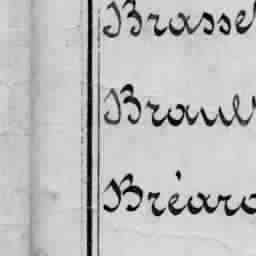 Brasse
Brault
Bréard